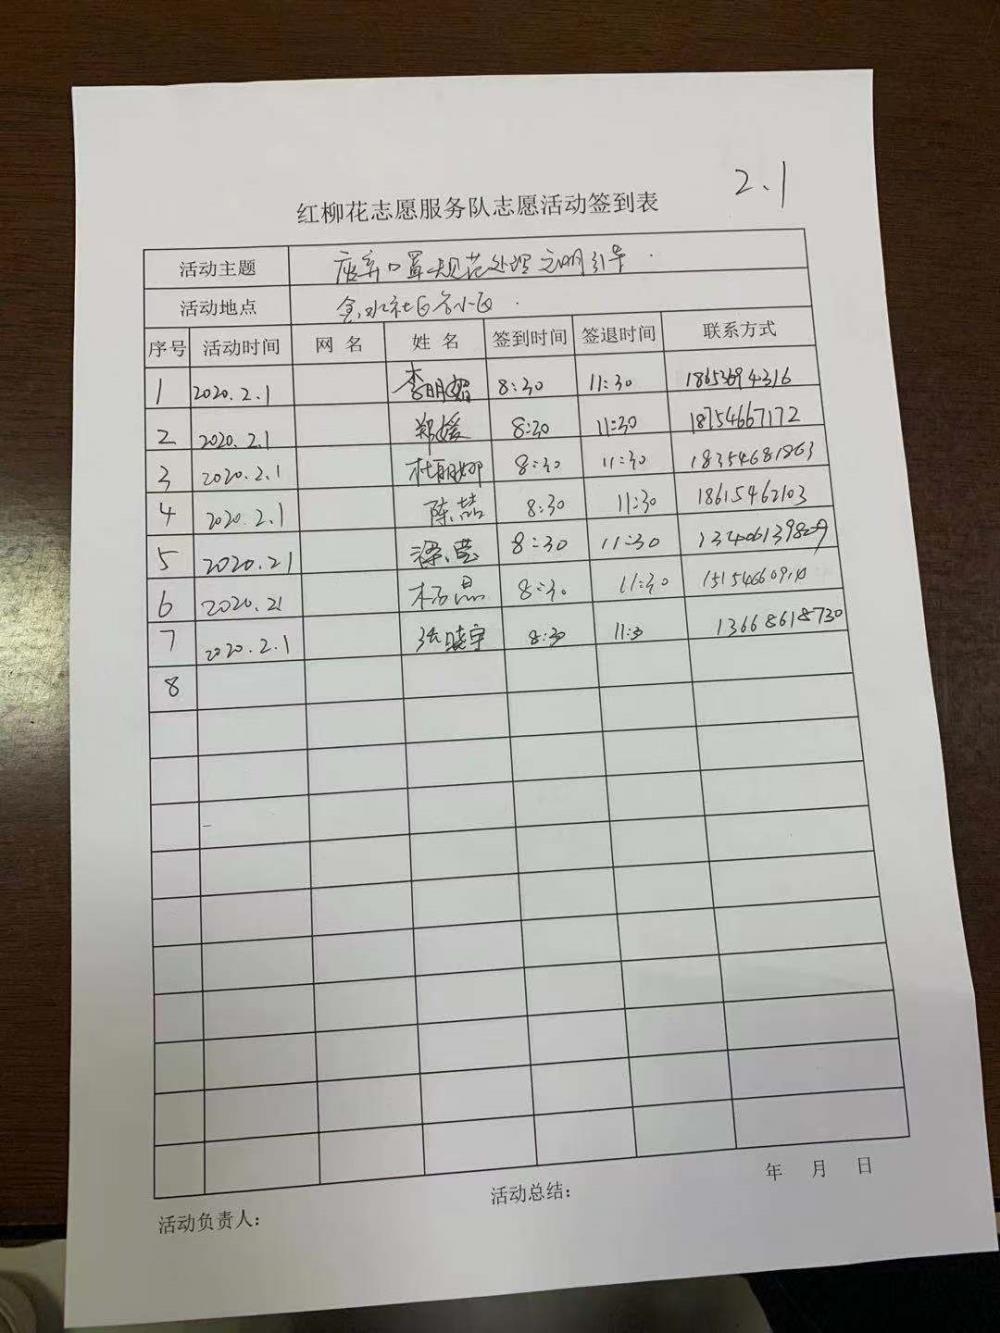 2.1
红柳花志愿服务队志愿活动签到表
活动主题 废弃口罩规范处理文明引导
活动地点 金水社区各小区
序号 活动时间 网 名 姓 名 签到时间 签退时间 联系方式
1 2020.2.1 李明媚 8:30 11:30 18653694316
2 2020.2.1 郑媛 8:30 11:30 18754667172
3 2020.2.1 杜丽娜 8:30 11:30 18354681863
4 2020.2.1 陈喆 8:30 11:30 18615462103
5 2020.21 梁莹 8:30 11:30
6 2020.21 杨晶 8:30 11:30
7 2020.2.1 张晓宇 8:30 11:30 13668618730
8
年 月 日
活动总结：
活动负责人：